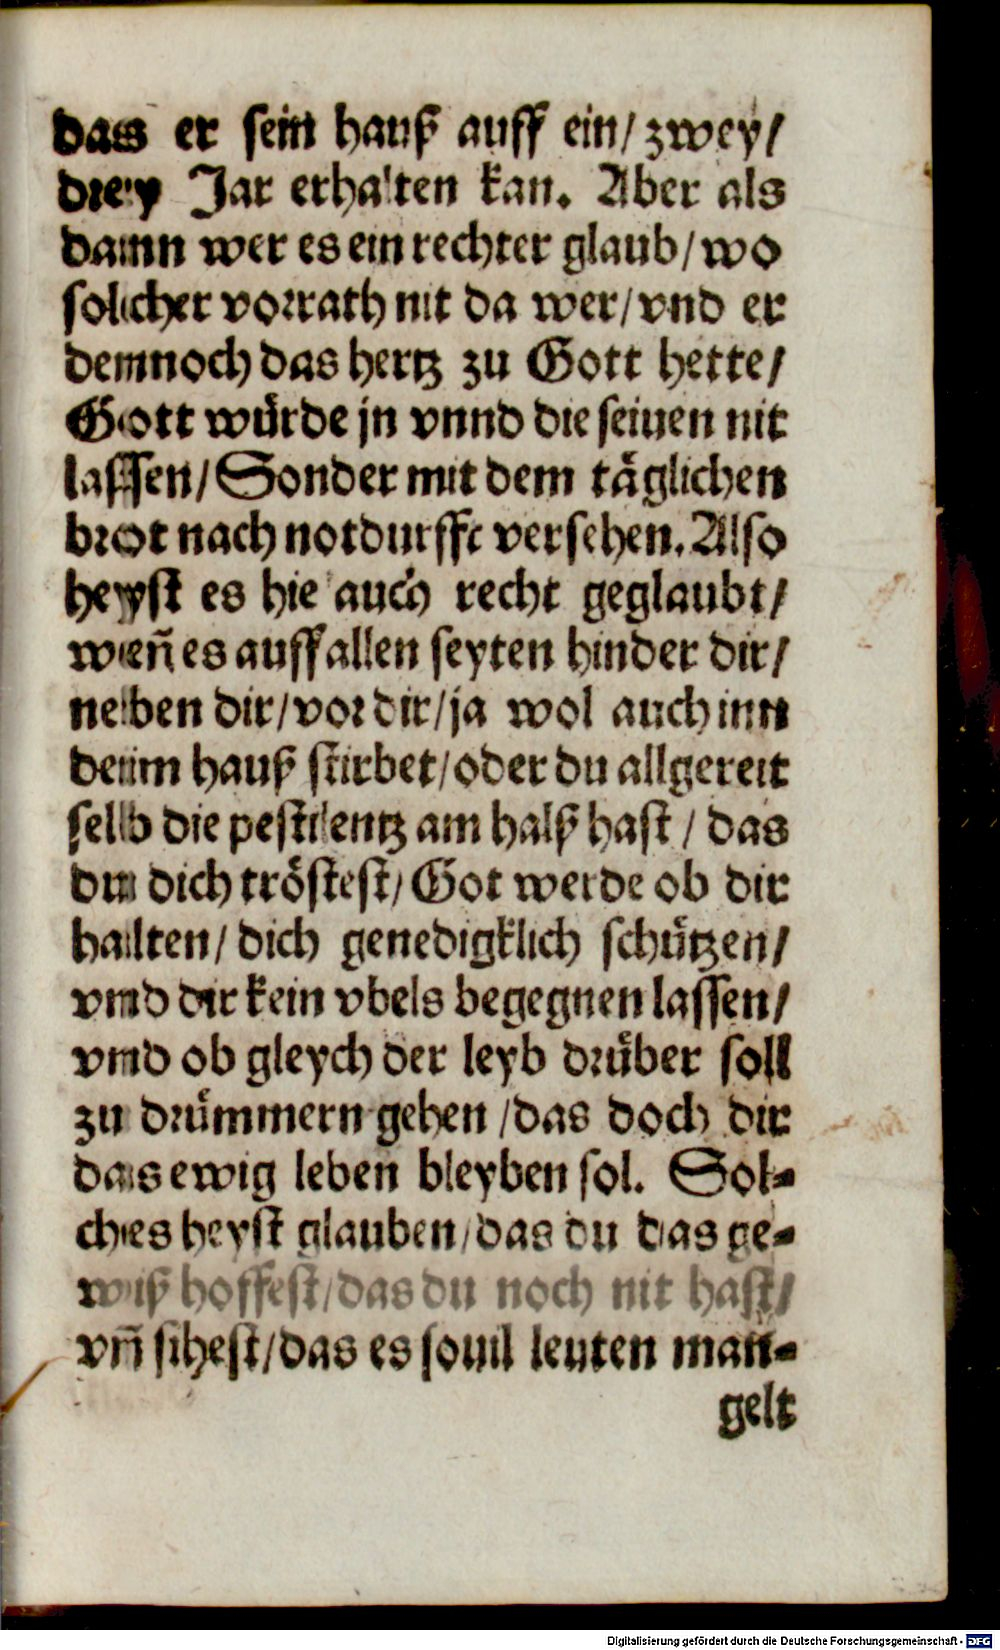 das er sein hauß auff ein/ zwey/
drey Jar erhalten kan. Aber als
dann wer es ein rechter glaub/ wo
solicher vorrath nit da wer/ vnd er
dennoch das hertz zu Gott hette/
Gott würde jn vnnd die seinen nit
lassen/ Sonder mit dem täglichen
brot nach notdurfft versehen. Also
heyst es hie auch recht geglaubt/
weñ es auff allen seyten hinder dir/
neben dir/ vor dir/ ja wol auch inn
deim hauß stirbet/ oder du allgereit
selb die pestilentz am halß hast / das
du dich tröstest/ Got werde ob dir
halten/ dich genedigklich schützen/
vnd dir kein vbels begegnen lassen/
vnd ob gleych der leyb drüber soll
zu drümmern gehen /das doch dir
das ewig leben bleyben sol. Sol-
ches heyst glauben/ das du das ge-
wiß hoffest/ das du noch nit hast/
vñ sihest/ das es souil leuten man-
gelt
Digitalisierung gefördert durch die Deutsche Forschungsgemeinschaft - DFG